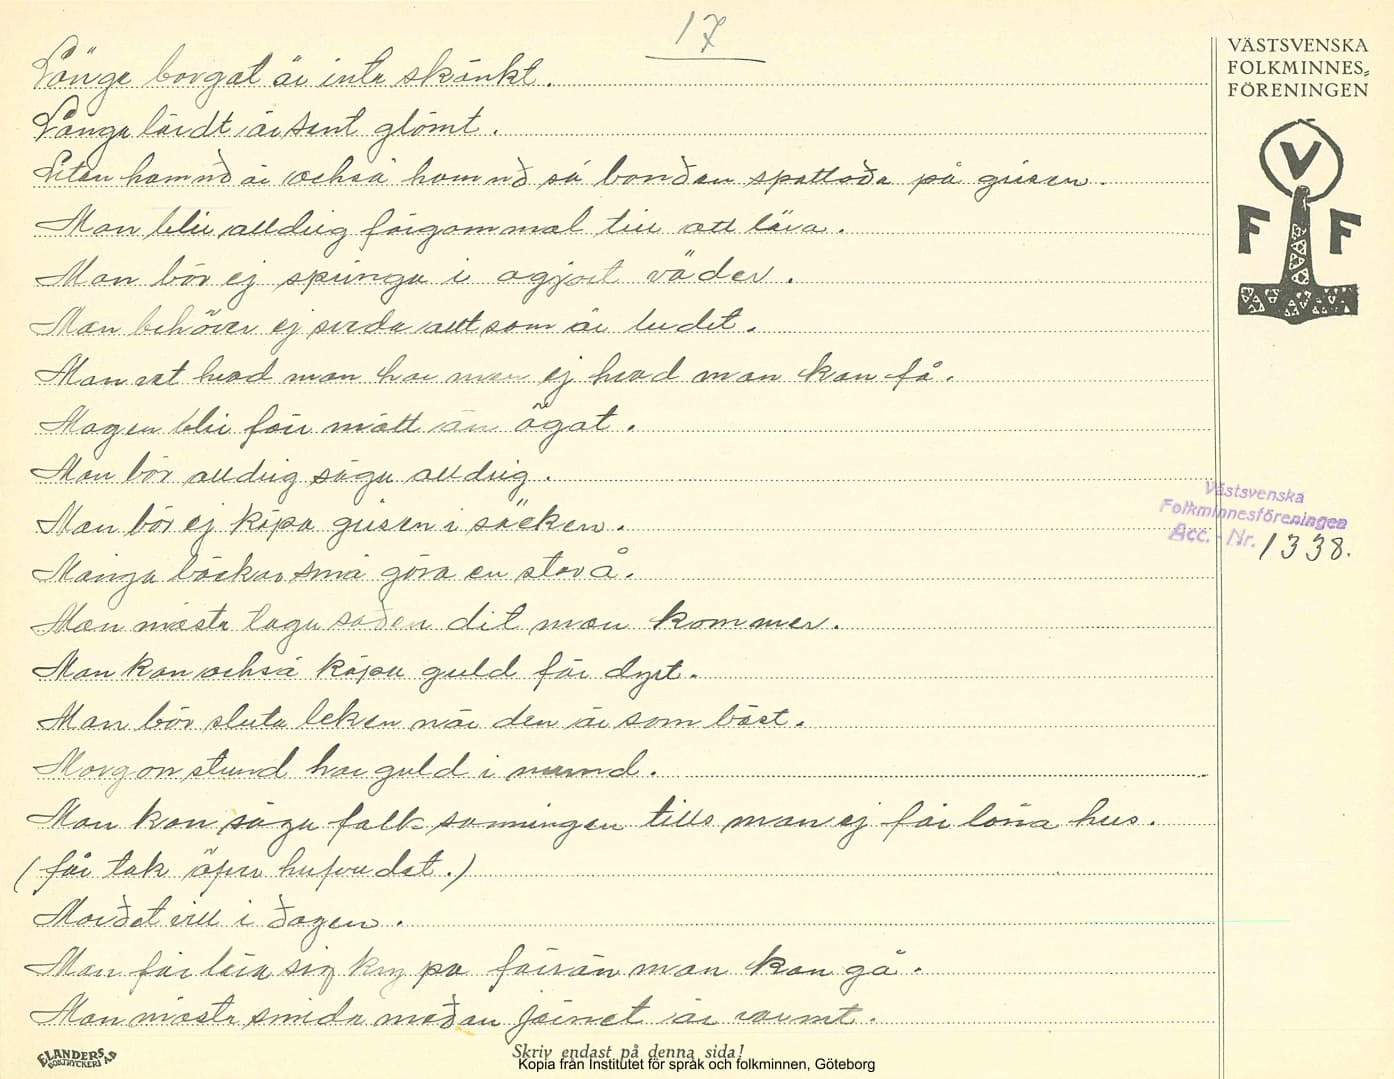 17
VÄSTSVENSKA
FOLKMINNES-
FÖRENINGEN
V
F F
Länge borgat är inte skänkt.
Länge lärdt är sent glömt.
Liten hamnð är också hamnð sa bonðen spottaðe på grisen.
Man blir alldrig förgammal till att lära.
Man bör ej springa i ogjort väder.
Man behöver ej sveda allt som är ludet.
Man vet hvad man har men ej hvad man kan få.
Magen blir förr mätt än ögat.
Man bör alldrig säga alldrig.
Man bör ej köpa grisen i säcken.
Många bäckar små göra en stor å.
Man måste taga seðen dit man kommer.
Man kan också köpa guld för dyrt.
Man bör sluta leken när den är som bäst.
Morgon stund har guld i mund.
Man kan säga folk sanningen tills man ej får låna hus.
(får tak öfver hufvudet.)
Morðet vill i ðagen.
Man får lära sig krypa förrän man kan gå.
Man måste smida meðan järnet är varmt.
Västsvenska
Folkminnesföreningen
Acc. - Nr. 1338.
ELANDERS
BOKTRYCKERI AB
Skriv endast på denna sida!
Kopia från Institutet för språk och folkminnen, Göteborg